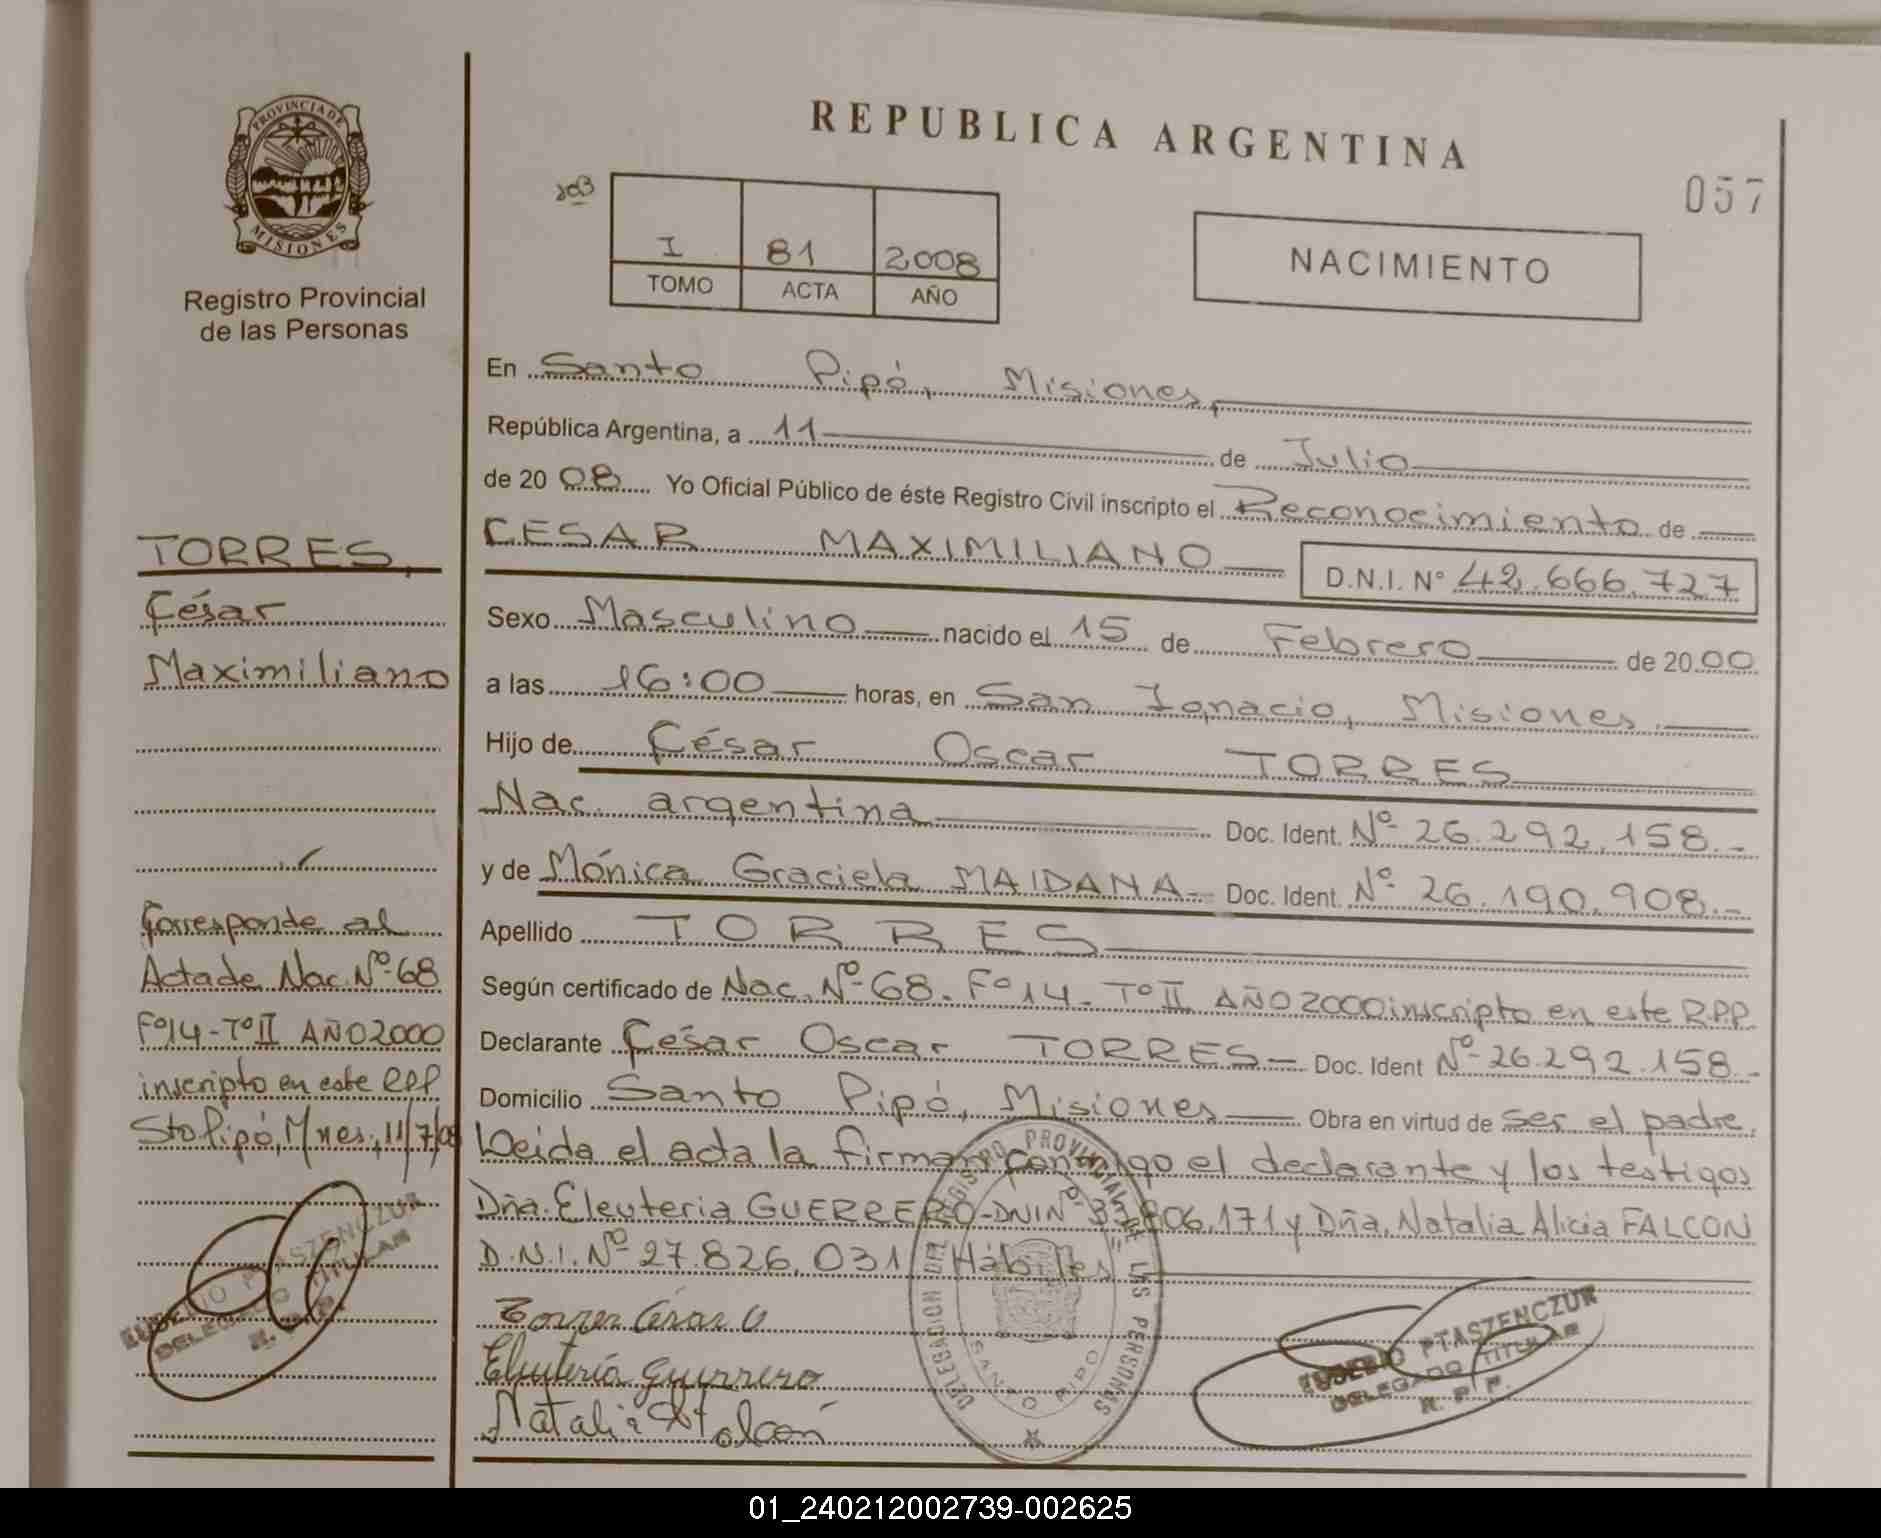 REPUBLICA ARGENTINA
057
PROVINCIA DE
MISIONES
Registro Provincial
de las Personas
I 81 2008
TOMO ACTA AÑO
NACIMIENTO
En Santo Pipó, Misiones,
República Argentina, a 11 de Julio
de 20 08 Yo Oficial Público de éste Registro Civil inscripto el Reconocimiento de
CESAR MAXIMILIANO D.N.I. Nº 42.666.727
Sexo Masculino nacido el 15 de Febrero de 20 00
a las 16:00 horas, en San Ignacio, Misiones.
Hijo de César Oscar TORRES
Nac. argentina Doc. Ident. Nº 26.292.158.-
y de Mónica Graciela MAIDANA- Doc. Ident. Nº 26.190.908.-
Apellido TORRES
Según certificado de Nac. Nº 68. Fº 14 - Tº II AÑO 2000 inscripto en este R.P.P.
Declarante César Oscar TORRES- Doc. Ident Nº 26.292.158.-
Domicilio Santo Pipó, Misiones Obra en virtud de ser el padre.
Leida el acta la firman conmigo el declarante y los testigos
Dña. Eleuteria GUERRERO-DNI Nº 806.171 y Dña. Natalia Alicia FALCON
D.N.I. Nº 27.826.031 Hábiles
Torres César O
Eleuteria Guerrero
Natalia Falcón
DELEGACION DEL REGISTRO PROVINCIAL DE LAS PERSONAS
SANTO PIPO
EUSEBIO PTASZENCZUK
DELEGADO TITULAR
R. P. P.
TORRES,
César
Maximiliano
Corresponde al
Acta de Nac. Nº 68
Fº 14 - Tº II AÑO 2000
inscripto en este RPP
Sto Pipó, Mnes., 11/7/08
EUSEBIO PTASZENCZUK
DELEGADO TITULAR
R. P. P.
01_240212002739-002625